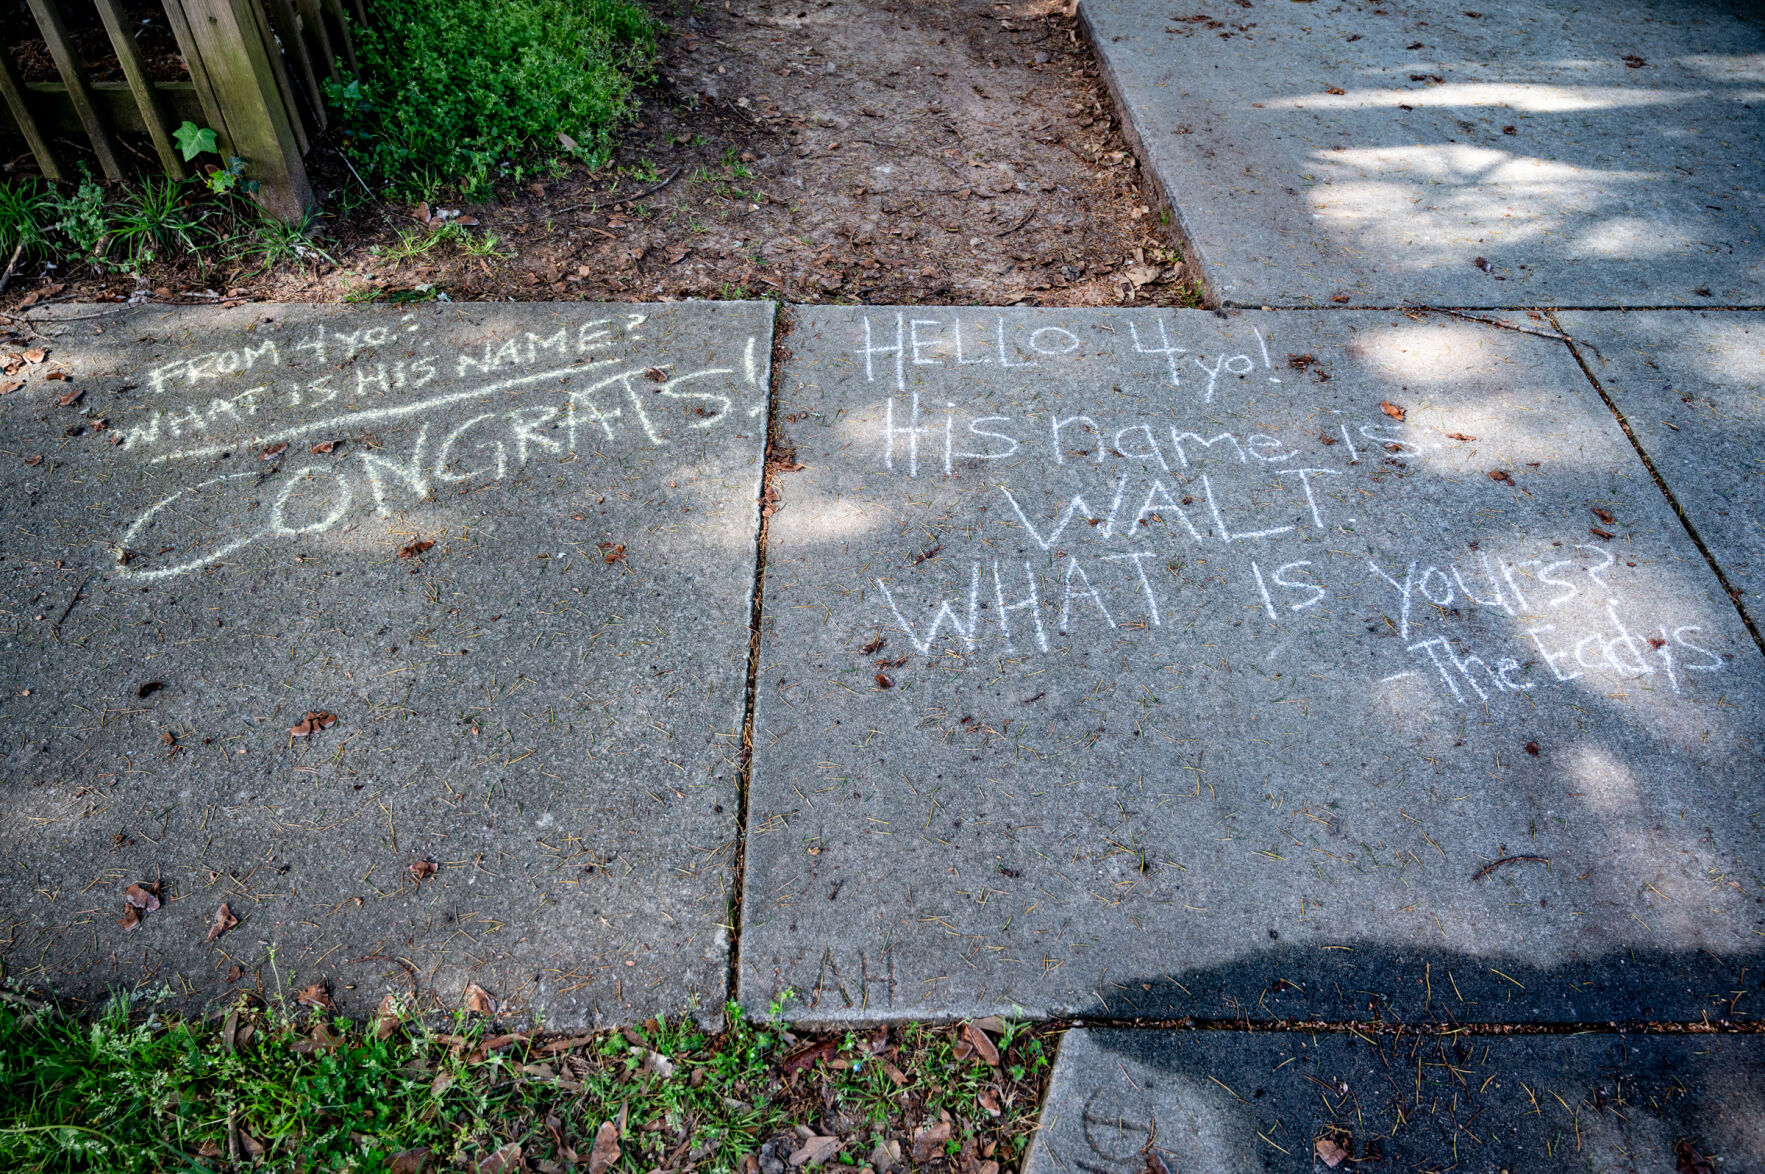 FROM 4yo:
WHAT IS HIS NAME?
CONGRATS!
HELLO 4yo!
His name is
WALT
WHAT IS yours?
- The Eadys
AH